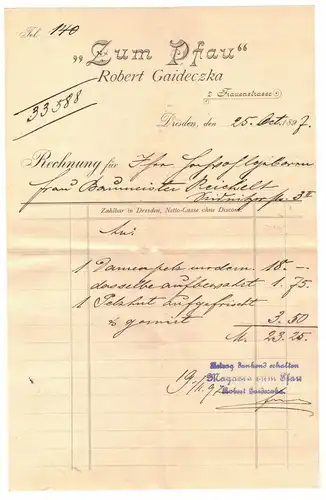 Tel. 140
„Zum Pfau“
Robert Gaideczka
2 Frauenstrasse
33588
Dresden, den 25. Oct. 1897.
Rechnung für
Frau Baumeister Reichelt
Zahlbar in Dresden, Netto-Casse ohne Discont
An:
1 Damenpelz modern 18.—
dasselbe aufbewahrt 1.75
1 Pelzhut aufgefrischt
& garnirt 3.50
M. 23.25
Betrag dankend erhalten
Magazin zum Pfau
Robert Gaideczka
19/11.97